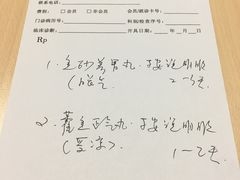 联系电话:
费别: □会员 □非会员 会员/就诊卡号:
门诊病历号: 科别/检查序号:
临床诊断: 开具日期: 年 月 日
Rp
1. 金砂养胃丸. 按说明服
(胀气 2-3天
2. 藿香正气丸. 按说明服
(受凉). 1-2天